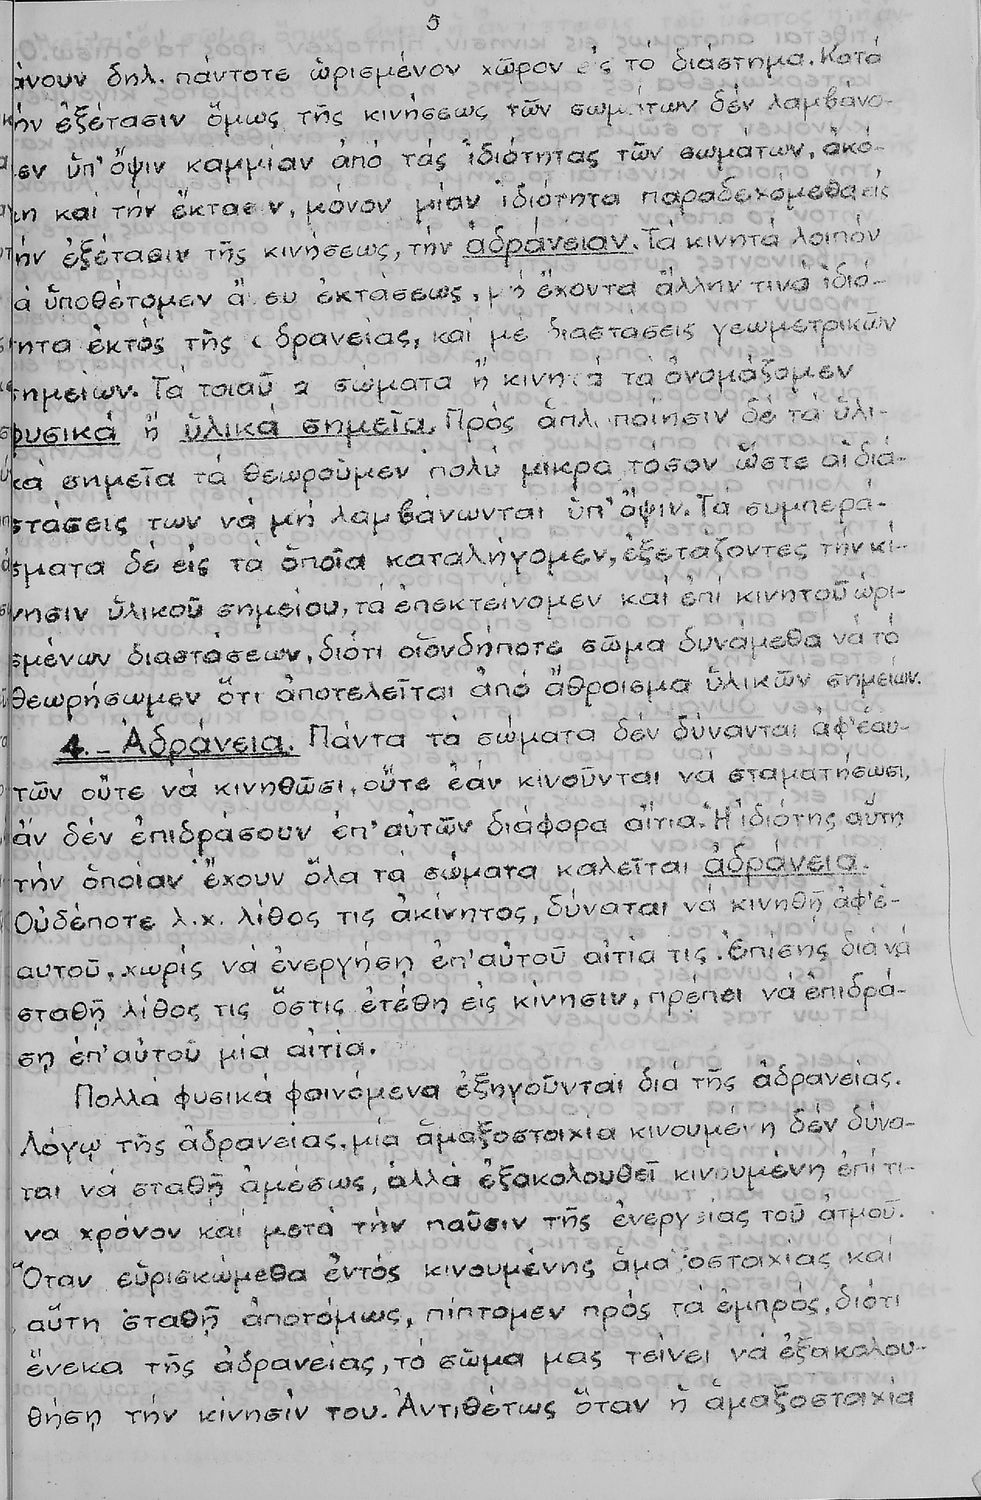 5
άνουν δηλ. πάντοτε ὡρισμένον χῶρον εἰς τό διάστημα. Κατά
ήν ἐξέτασιν ὅμως τῆς κινήσεως τῶν σωμάτων δέν λαμβάνο-
εν ὑπ' ὄψιν καμμίαν ἀπό τάς ἰδιότητας τῶν σωμάτων, ἀκό-
η καί τήν ἔκτασιν, μόνον μίαν ἰδιότητα παραδεχόμεθα εἰς
ήν ἐξέτασιν τῆς κινήσεως, τήν ἀδράνειαν. Τά κινητά λοιπόν
ά ὑποθέτομεν ἄνευ ἐκτάσεως, μή ἔχοντα ἄλλην τινά ἰδιό-
τητα ἐκτός τῆς ἀδρανείας, καί μέ διαστάσεις γεωμετρικῶν
σημείων. Τά τοιαῦτα σώματα ἤ κινητά τά ὀνομάζομεν
φυσικά ἤ ὑλικά σημεῖα. Πρός ἁπλοποίησιν δέ τά ὑλι-
κά σημεῖα τά θεωροῦμεν πολύ μικρά τόσον ὥστε αἱ διά-
στάσεις των νά μή λαμβάνωνται ὑπ' ὄψιν. Τά συμπερά-
σματα δέ εἰς τά ὁποῖα καταλήγομεν, ἐξετάζοντες τήν κί-
νησιν ὑλικοῦ σημείου, τά ἐπεκτείνομεν καί ἐπί κινητοῦ ὡρι-
σμένων διαστάσεων, διότι οἱονδήποτε σῶμα δυνάμεθα νά τό
θεωρήσωμεν ὅτι ἀποτελεῖται ἀπό ἄθροισμα ὑλικῶν σημείων.
4.- Ἀδράνεια. Πάντα τά σώματα δέν δύνανται ἀφ' ἑαυ-
τῶν οὔτε νά κινηθῶσι, οὔτε ἐάν κινοῦνται νά σταματήσωσι,
ἄν δέν ἐπιδράσουν ἐπ' αὐτῶν διάφορα αἴτια. Ἡ ἰδιότης αὕτη
τήν ὁποίαν ἔχουν ὅλα τά σώματα καλεῖται ἀδράνεια.
Οὐδέποτε λ.χ. λίθος τις ἀκίνητος, δύναται νά κινηθῇ ἀφ' ἑ-
αυτοῦ, χωρίς νά ἐνεργήσῃ ἐπ' αὐτοῦ αἰτία τις. Ἐπίσης διά νά
σταθῇ λίθος τις ὅστις ἐτέθη εἰς κίνησιν, πρέπει νά ἐπιδρά-
σῃ ἐπ' αὐτοῦ μία αἰτία.
Πολλά φυσικά φαινόμενα ἐξηγοῦνται διά τῆς ἀδρανείας.
Λόγῳ τῆς ἀδρανείας, μία ἁμαξοστοιχία κινουμένη δέν δύνα-
ται νά σταθῇ ἀμέσως, ἀλλά ἐξακολουθεῖ κινουμένη ἐπί τι-
να χρόνον καί μετά τήν παῦσιν τῆς ἐνεργείας τοῦ ἀτμοῦ.
Ὅταν εὑρισκώμεθα ἐντός κινουμένης ἁμαξοστοιχίας καί
αὕτη σταθῇ ἀποτόμως, πίπτομεν πρός τά ἐμπρός, διότι
ἕνεκα τῆς ἀδρανείας, τό σῶμα μας τείνει νά ἐξακολου-
θήσῃ τήν κίνησίν του. Ἀντιθέτως ὅταν ἡ ἁμαξοστοιχία